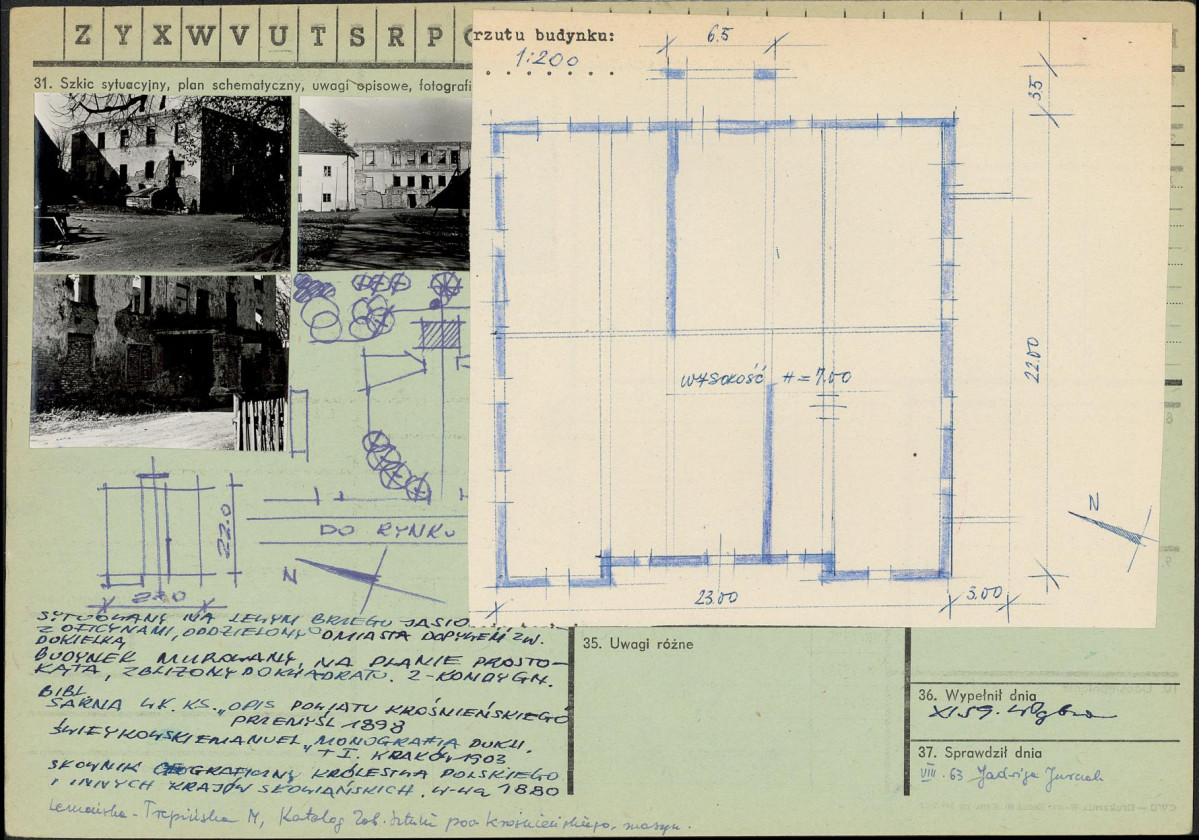 Z Y X W V U T S R P
rzutu budynku:
1:200
31. Szkic sytuacyjny, plan schematyczny, uwagi opisowe, fotografi
6.5
3.5
WYSOKOŚĆ H = 7.00
22.00
N
23.00
3.00
22.0
22.0
DO RYNKU
N
SYTUOWANY NA LEWYM BRZEGU JASIO
Z OFICYNAMI, ODDZIELONY OD MIASTA DOPŁYWEM ZW.
DOKIELKĄ
BUDYNEK MUROWANY, NA PLANIE PROSTO-
KĄTA, ZBLIŻONY DO KWADRATU. 2-KONDYGN.
BIBL.
SARNA WŁ. KS. „OPIS POWIATU KROŚNIEŃSKIEGO
PRZEMYŚL 1898
ŚWIEYKOWSKI EMANUEL „MONOGRAFIA DUKLI,
T I. KRAKÓW 1903
SŁOWNIK GEOGRAFICZNY KRÓLESTWA POLSKIEGO
I INNYCH KRAJÓW SŁOWIAŃSKICH. W-WA 1880
Katalog Zab. Sztuki pow. krośnieńskiego, maszyn.
35. Uwagi różne
36. Wypełnił dnia
XI 59.
37. Sprawdził dnia
VIII. 63 Jadwiga